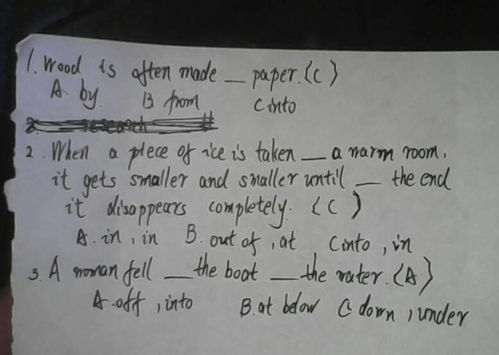 1. Wood is often made _ paper. (C)
A. by. B from C into
2. When a piece of ice is taken _ a warm room,
it gets smaller and smaller until _ the end
it disappears completely. (C)
A. in, in B. out of, at C into, in
3. A woman fell _ the boat _ the water. (A)
A. off, into B. at below C. down, under